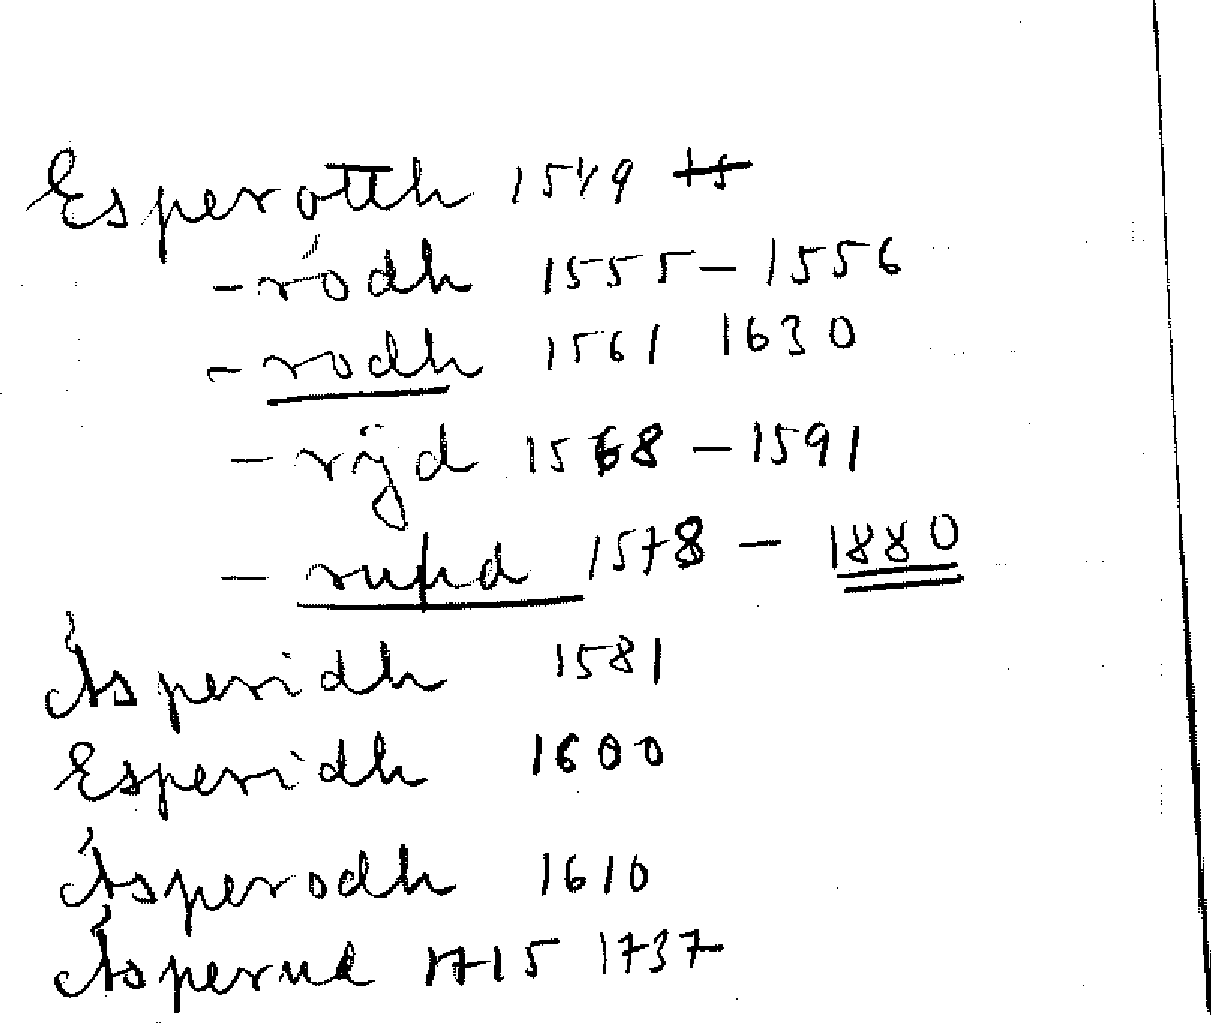 Esperötth 1549
-rödh 1555-1556
-rodh 1561 1630
-rÿd 1568-1591
- 1578 - 1880
Åsperidh 1581
Esperidh 1600
Åsperodh 1610
Åsperud 1715 1737